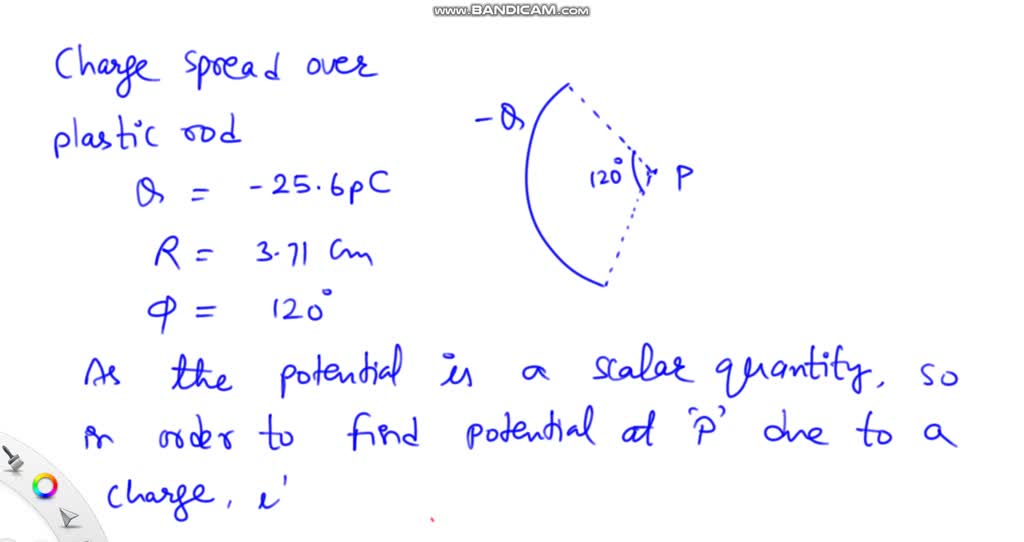 www.BANDICAM.com
Charge spread over
plastic rod
Q = -25.6pC
R = 3.71 cm
φ = 120°
-Q
120°
P
As the potential is a scalar quantity, so
in order to find potential at 'P' due to a
charge,